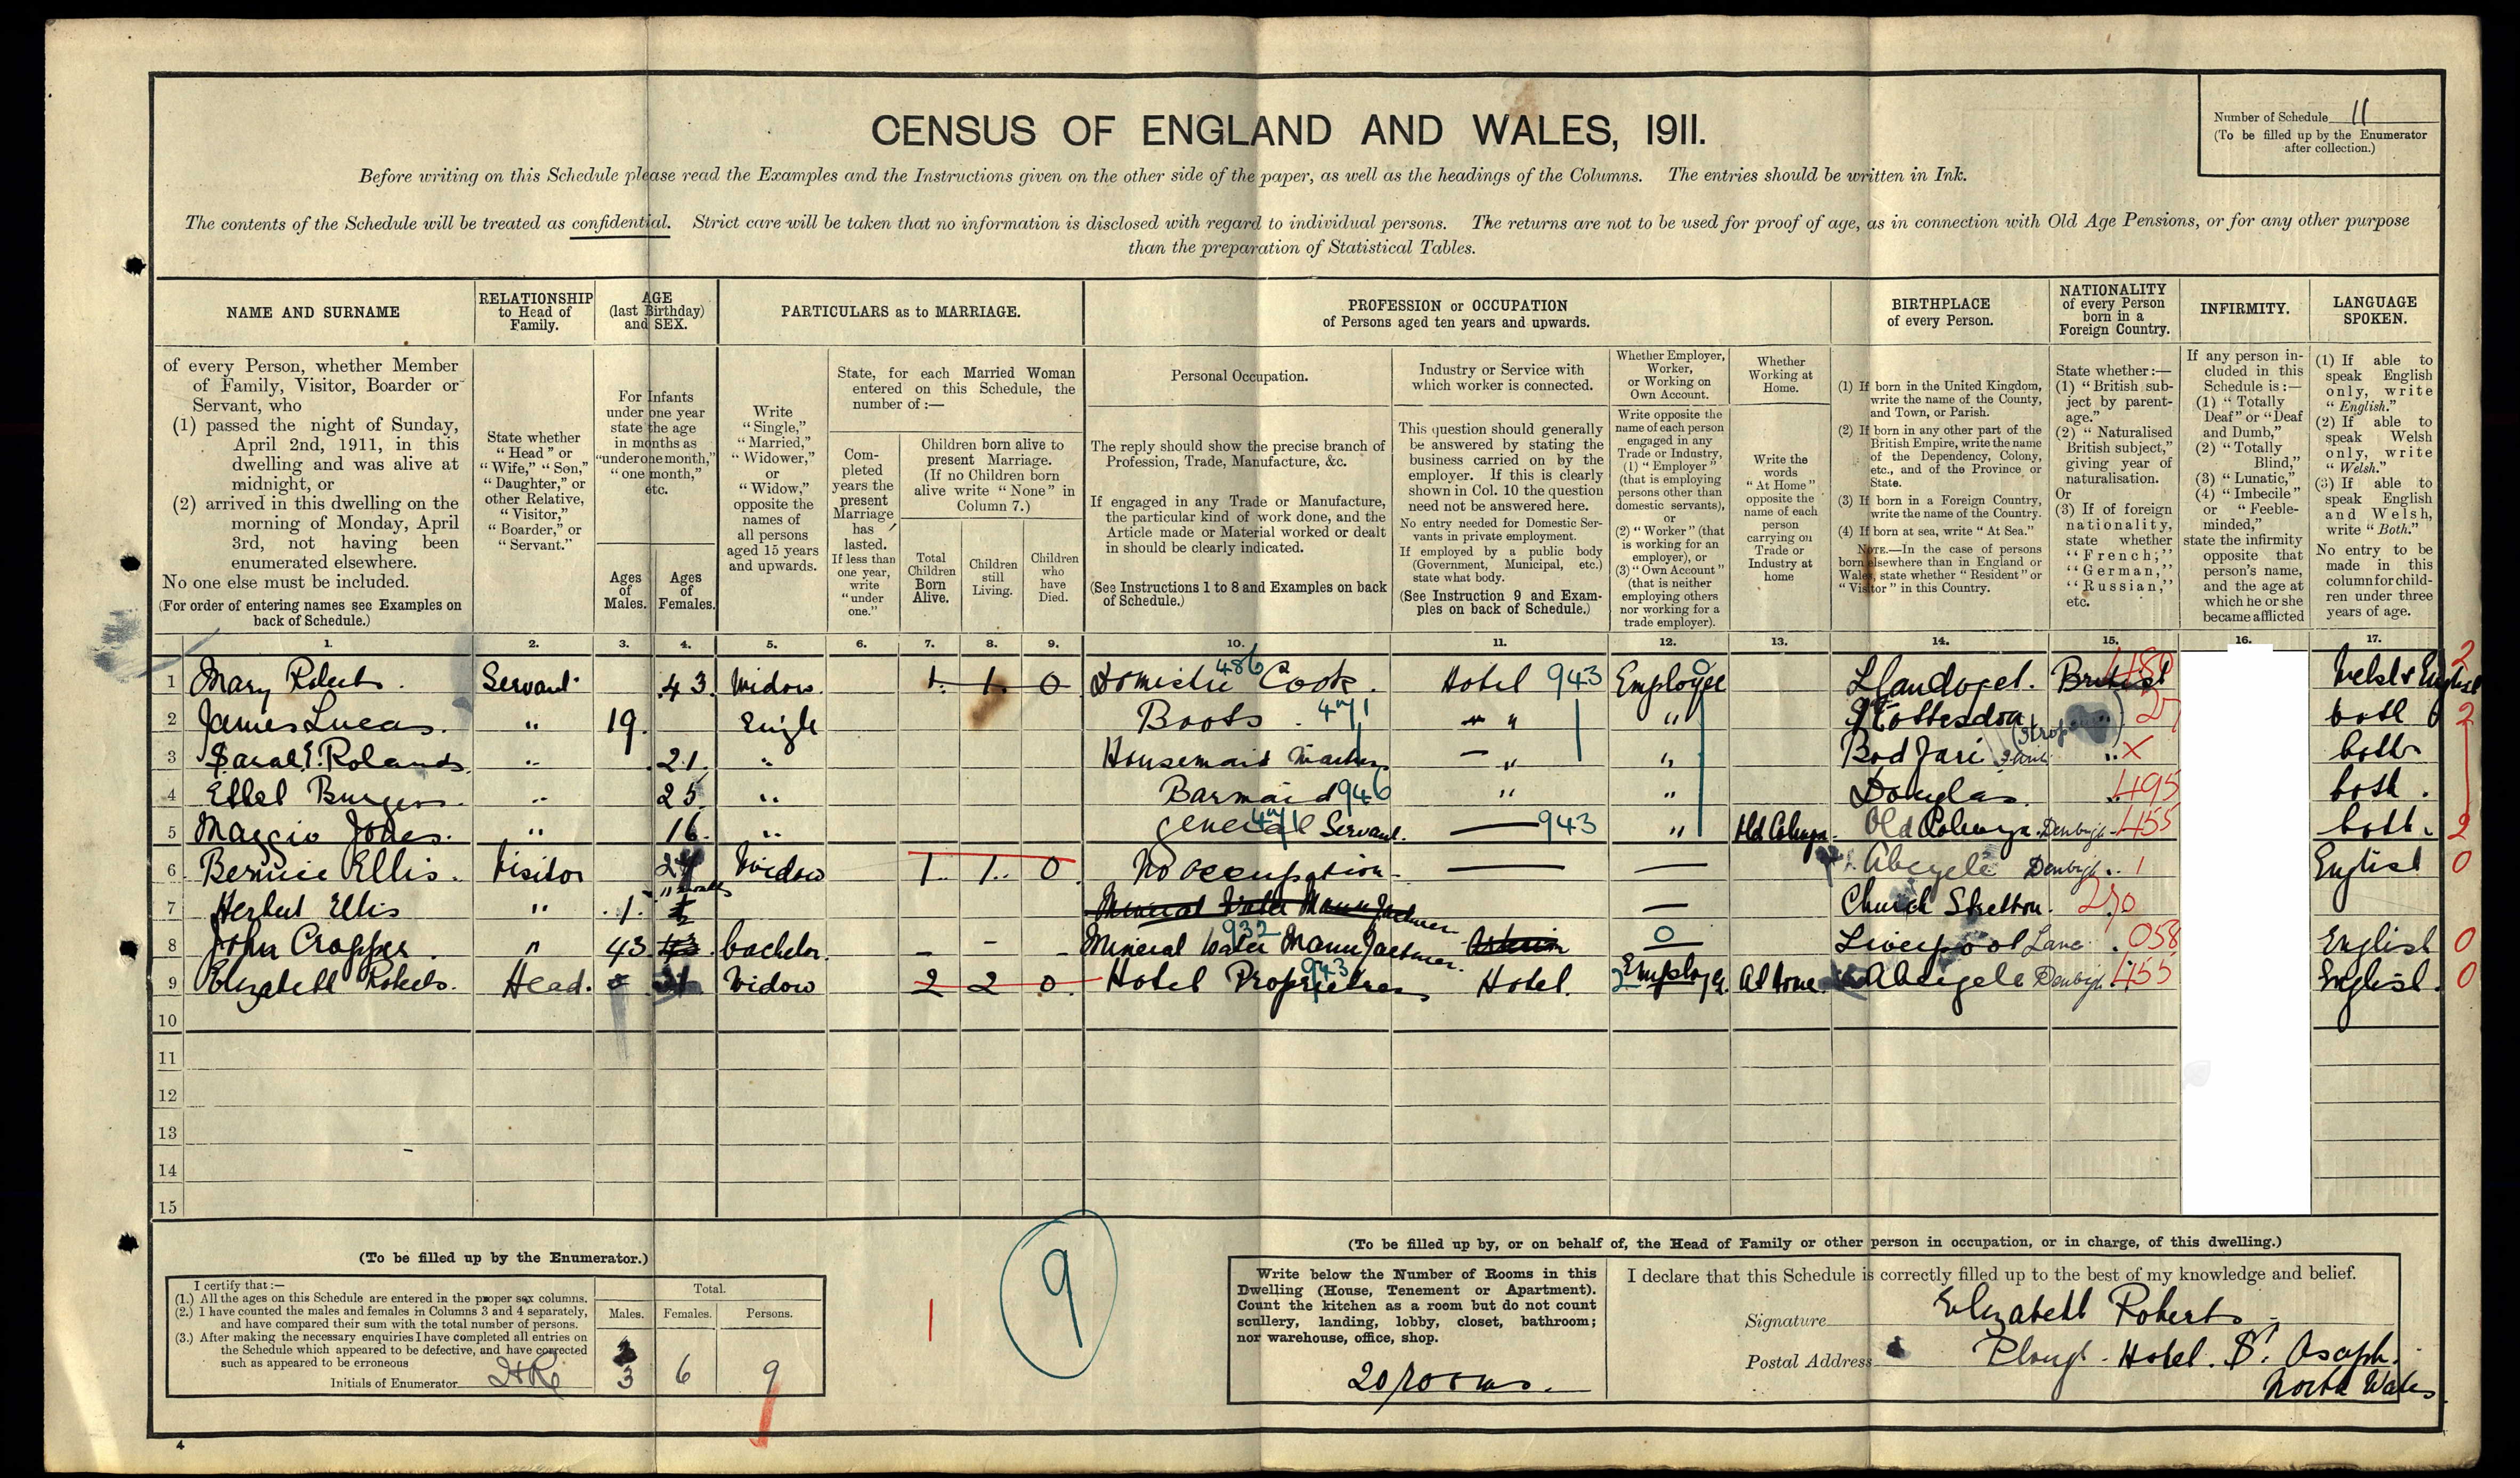 Number of Schedule 11
(To be filled up by the Enumerator
after collection.)
CENSUS OF ENGLAND AND WALES, 1911.
Before writing on this Schedule please read the Examples and the Instructions given on the other side of the paper, as well as the headings of the Columns. The entries should be written in Ink.
The contents of the Schedule will be treated as confidential. Strict care will be taken that no information is disclosed with regard to individual persons. The returns are not to be used for proof of age, as in connection with Old Age Pensions, or for any other purpose
than the preparation of Statistical Tables.
NAME AND SURNAME
of every Person, whether Member
of Family, Visitor, Boarder or
Servant, who
(1) passed the night of Sunday,
April 2nd, 1911, in this
dwelling and was alive at
midnight, or
(2) arrived in this dwelling on the
morning of Monday, April
3rd, not having been
enumerated elsewhere.
No one else must be included.
(For order of entering names see Examples on
back of Schedule.)
RELATIONSHIP
to Head of
Family.
State whether
"Head" or
"Wife," "Son,"
"Daughter," or
other Relative,
"Visitor,"
"Boarder," or
"Servant."
AGE
(last Birthday)
and SEX.
For Infants
under one year
state the age
in months as
"under one month,"
"one month,"
etc.
Ages
of
Males.
Ages
of
Females.
PARTICULARS as to MARRIAGE.
Write
"Single,"
"Married,"
"Widower,"
or
"Widow,"
opposite the
names of
all persons
aged 15 years
and upwards.
State, for each Married Woman
entered on this Schedule, the
number of :—
Com-
pleted
years the
present
Marriage
has
lasted.
If less than
one year,
write
"under
one."
Children born alive to
present Marriage.
(If no Children born
alive write "None" in
Column 7.)
Total
Children
Born
Alive.
Children
still
Living.
Children
who
have
Died.
PROFESSION or OCCUPATION
of Persons aged ten years and upwards.
Personal Occupation.
The reply should show the precise branch of
Profession, Trade, Manufacture, &c.
If engaged in any Trade or Manufacture,
the particular kind of work done, and the
Article made or Material worked or dealt
in should be clearly indicated.
(See Instructions 1 to 8 and Examples on back
of Schedule.)
Industry or Service with
which worker is connected.
This question should generally
be answered by stating the
business carried on by the
employer. If this is clearly
shown in Col. 10 the question
need not be answered here.
No entry needed for Domestic Ser-
vants in private employment.
If employed by a public body
(Government, Municipal, etc.)
state what body.
(See Instruction 9 and Exam-
ples on back of Schedule.)
Whether Employer,
Worker,
or Working on
Own Account.
Write opposite the
name of each person
engaged in any
Trade or Industry,
(1) "Employer"
(that is employing
persons other than
domestic servants),
or
(2) "Worker" (that
is working for an
employer), or
(3) "Own Account"
(that is neither
employing others
nor working for a
trade employer).
Whether
Working at
Home.
Write the
words
"At Home"
opposite the
name of each
person
carrying on
Trade or
Industry at
home
BIRTHPLACE
of every Person.
(1) If born in the United Kingdom,
write the name of the County,
and Town, or Parish.
(2) If born in any other part of the
British Empire, write the name
of the Dependency, Colony,
etc., and of the Province or
State.
(3) If born in a Foreign Country,
write the name of the Country.
(4) If born at sea, write "At Sea."
NOTE.—In the case of persons
born elsewhere than in England or
Wales, state whether "Resident" or
"Visitor" in this Country.
NATIONALITY
of every Person
born in a
Foreign Country.
State whether :—
(1) "British sub-
ject by parent-
age."
(2) "Naturalised
British subject,"
giving year of
naturalisation.
Or
(3) If of foreign
nationality,
state whether
"French,"
"German,"
"Russian,"
etc.
INFIRMITY.
If any person in-
cluded in this
Schedule is :—
(1) "Totally
Deaf" or "Deaf
and Dumb,"
(2) "Totally
Blind,"
(3) "Lunatic,"
(4) "Imbecile"
or "Feeble-
minded,"
state the infirmity
opposite that
person's name,
and the age at
which he or she
became afflicted
LANGUAGE
SPOKEN.
(1) If able to
speak English
only, write
"English."
(2) If able to
speak Welsh
only, write
"Welsh."
(3) If able to
speak English
and Welsh,
write "Both."
No entry to be
made in this
column for child-
ren under three
years of age.
1. 2. 3. 4. 5. 6. 7. 8. 9. 10. 11. 12. 13. 14. 15. 16. 17.
1 Mary Roberts. Servant. 43. Widow. 1. 1. 0 Domestic 486 Cook. Hotel 943 Employee 0 Llandogel. British 480 Welsh & English 2
2 James Lucas. " 19. Single Boots. 471 " " Stottesdon 27 both 2
3 Sarah E. Rolands. " 21. " Housemaid " " Bod Jari " X both
4 Ethel Burgess. " 25. " Barmaid 946 " " Douglas. 495 both.
5 Maggie Jones. " 16. " General 471 Servant. 943 " Old Colwyn. Old Colwyn. Denbigh 455 both. 2
6 Bernice Ellis. Visitor 24 Widow 1 1. 0 No occupation — — Abergele Denbigh 1 English 0
7 Herbert Ellis " 1. Mineral Water Manufacturer — Church Stretton. 270
8 John Cropper. " 43. 43 bachelor. – – – Mineral Water Manufacturer. 932 0 Liverpool Lanc 058 English 0
9 Elizabeth Roberts. Head. Widow 2 2 0. Hotel Proprietress 943 Hotel. 2 Employer. At home. Abergele Denbigh 455 English. 0
10
11
12
13
14
15
(To be filled up by the Enumerator.)
I certify that :—
(1.) All the ages on this Schedule are entered in the proper sex columns.
(2.) I have counted the males and females in Columns 3 and 4 separately,
and have compared their sum with the total number of persons.
(3.) After making the necessary enquiries I have completed all entries on
the Schedule which appeared to be defective, and have corrected
such as appeared to be erroneous
Initials of Enumerator
Total.
Males. Females. Persons.
3 6 9
1
9
(To be filled up by, or on behalf of, the Head of Family or other person in occupation, or in charge, of this dwelling.)
Write below the Number of Rooms in this
Dwelling (House, Tenement or Apartment).
Count the kitchen as a room but do not count
scullery, landing, lobby, closet, bathroom;
nor warehouse, office, shop.
20 rooms.
I declare that this Schedule is correctly filled up to the best of my knowledge and belief.
Signature Elizabeth Roberts
Postal Address Plough Hotel. St. Asaph.
North Wales
4